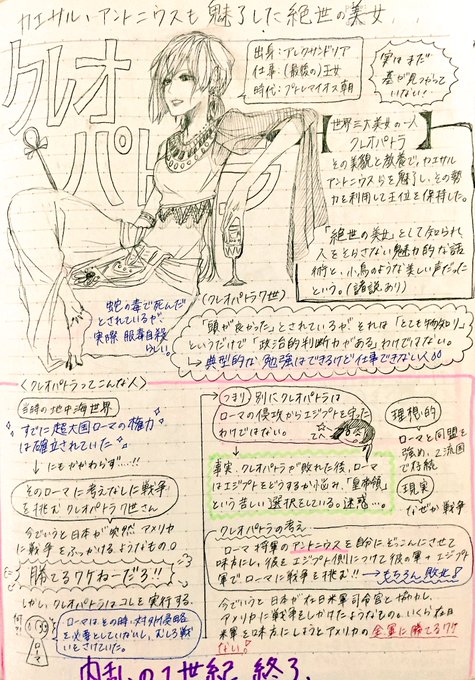 カエサル、アントニウスも魅了した絶世の美女...
クレオ
パトラ
出身：アレクサンドリア
仕事：(最後の)王女
時代：プトレマイオス朝
実はまだ
墓が見つかって
いない！
世界三大美女の一人
クレオパトラ
その美貌と教養で、カエサル
アントニウスらを魅了し、その勢
力を利用して王位を保持した。
「絶世の美女」として知られ
人をそらさない魅力的な話
術と、小鳥のような美しい声だった
という。(諸説あり)
(クレオパトラ7世)
蛇の毒で死んだ
とされているが、
実際服毒自殺
らしい。
「頭が良かった」とされているが それは「とても物知り」
というだけで「政治的判断力がある」わけではない。
↳典型的な勉強はできるけど仕事できない人
<クレオパトラってこんな人>
当時の地中海世界
すでに超大国ローマの権力
は確立されていた
↓にもかかわらず…!!
そのローマに考えなしに戦争
を挑むクレオパトラ7世さん
今でいうと日本が突然アメリカ
に戦争をふっかけるようなもの。
勝てるワケねーだろ!!
しかし、クレオパトラはコレを実行する。
ローマ
ローマはその時、対外侵略
を必要としていないし、むしろ戦
いをさけていた。
つまり 別にクレオパトラは
ローマの侵攻からエジプトを守った
わけではない。
事実、クレオパトラが敗れた後、ローマ
はエジプトをどうするか悩み「皇帝領」
という苦しい選択をしている。迷惑…。
理想的
ローマと同盟を
強め、2流国
で存続
現実
なぜか戦争
クレオパトラの考え
ローマ将軍のアントニウスを自分にぞっこんにさせて
味方にし、彼をエジプト側につけて彼の軍+エジプト
軍でローマに戦争を挑む!! →もちろん敗北!
今でいうと日本が在日米軍司令官と協力し、
アメリカに戦争をしかけたようなもの。いくら在日
米軍を味方にしようとアメリカの全軍に勝てるワケ
ない！
内乱の1世紀、終了。